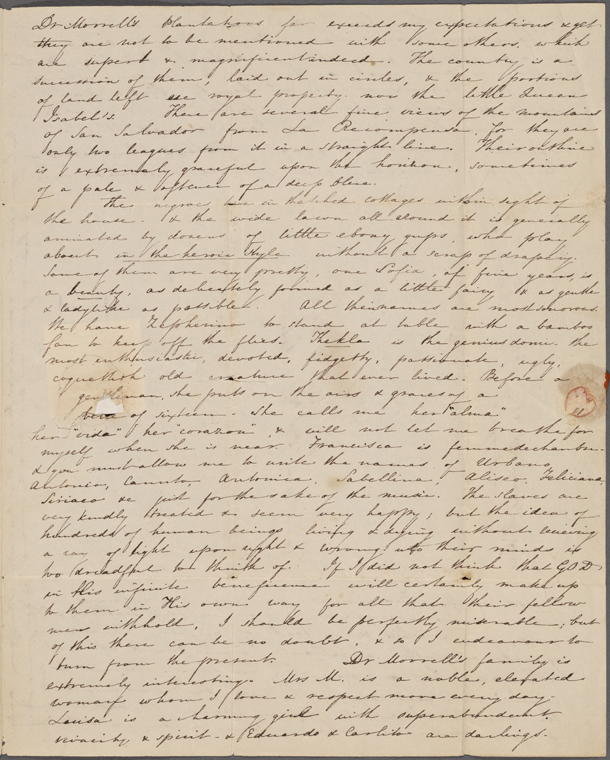 Dr Morrell's Plantations far exceeds my expectations & yet
they are not to be mentioned with some others, which
are superb & magnificent indeed. The country is a
succession of them, laid out in circles, & the portions
of land left are royal property. now the little Queen
Isabel's. There are several fine views of the mountains
of San Salvador from La Recompensa, for they are
only two leagues from it in a straight line. Their outline
is extremely graceful upon the horizon, sometimes
of a pale & oftener of a deep blue.
The negroes live in thatched cottages within sight of
the house. & the wide lawn all around it is generally
animated by dozens of little ebony pups, who play
about in the heroic style without a scrap of drapery.
Some of them are very pretty, one Sofia, of five years, is
a beauty, as delicately formed as a little fairy & as gentle
& ladylike as possible. All their names are most sonorous.
We have Zepherino to stand at table with a bamboo
fan to keep off the flies. Thekla is the genius domi. the
most enthusiastic, devoted, fidgetty, passionate, ugly,
coquettish old creature that ever lived. Before a
gentleman, she puts on the airs & graces of a
of sixteen. She calls me her "alma"
her "vida" her "corazon", & will not let me breathe for
myself when she is near. Francisca is femme de chambre.
& you must allow me to write the names of Urbano,
Antonio, Canuto, Antonica, Sabellina, Aliseo, Feliciana,
Siriaco &c just for the sake of the music. The slaves are
very kindly treated & seem very happy; but the idea of
hundreds of human beings living & dying without receiving
a ray of light upon right & wrong into their minds is
too dreadful to think of. If I did not think that GOD
in His infinite beneficence will certainly make up
to them in His own way for all that their fellow
men withhold, I should be perfectly miserable; but
of this there can be no doubt, & so I endeavour to
turn from the present. Dr Morrell's family is
extremely interesting. Mrs M. is a noble, elevated
woman whom I love & respect more every day.
Louisa is a charming girl with superabundant
vivacity & spirit. & Eduardo & Carlito are darlings.